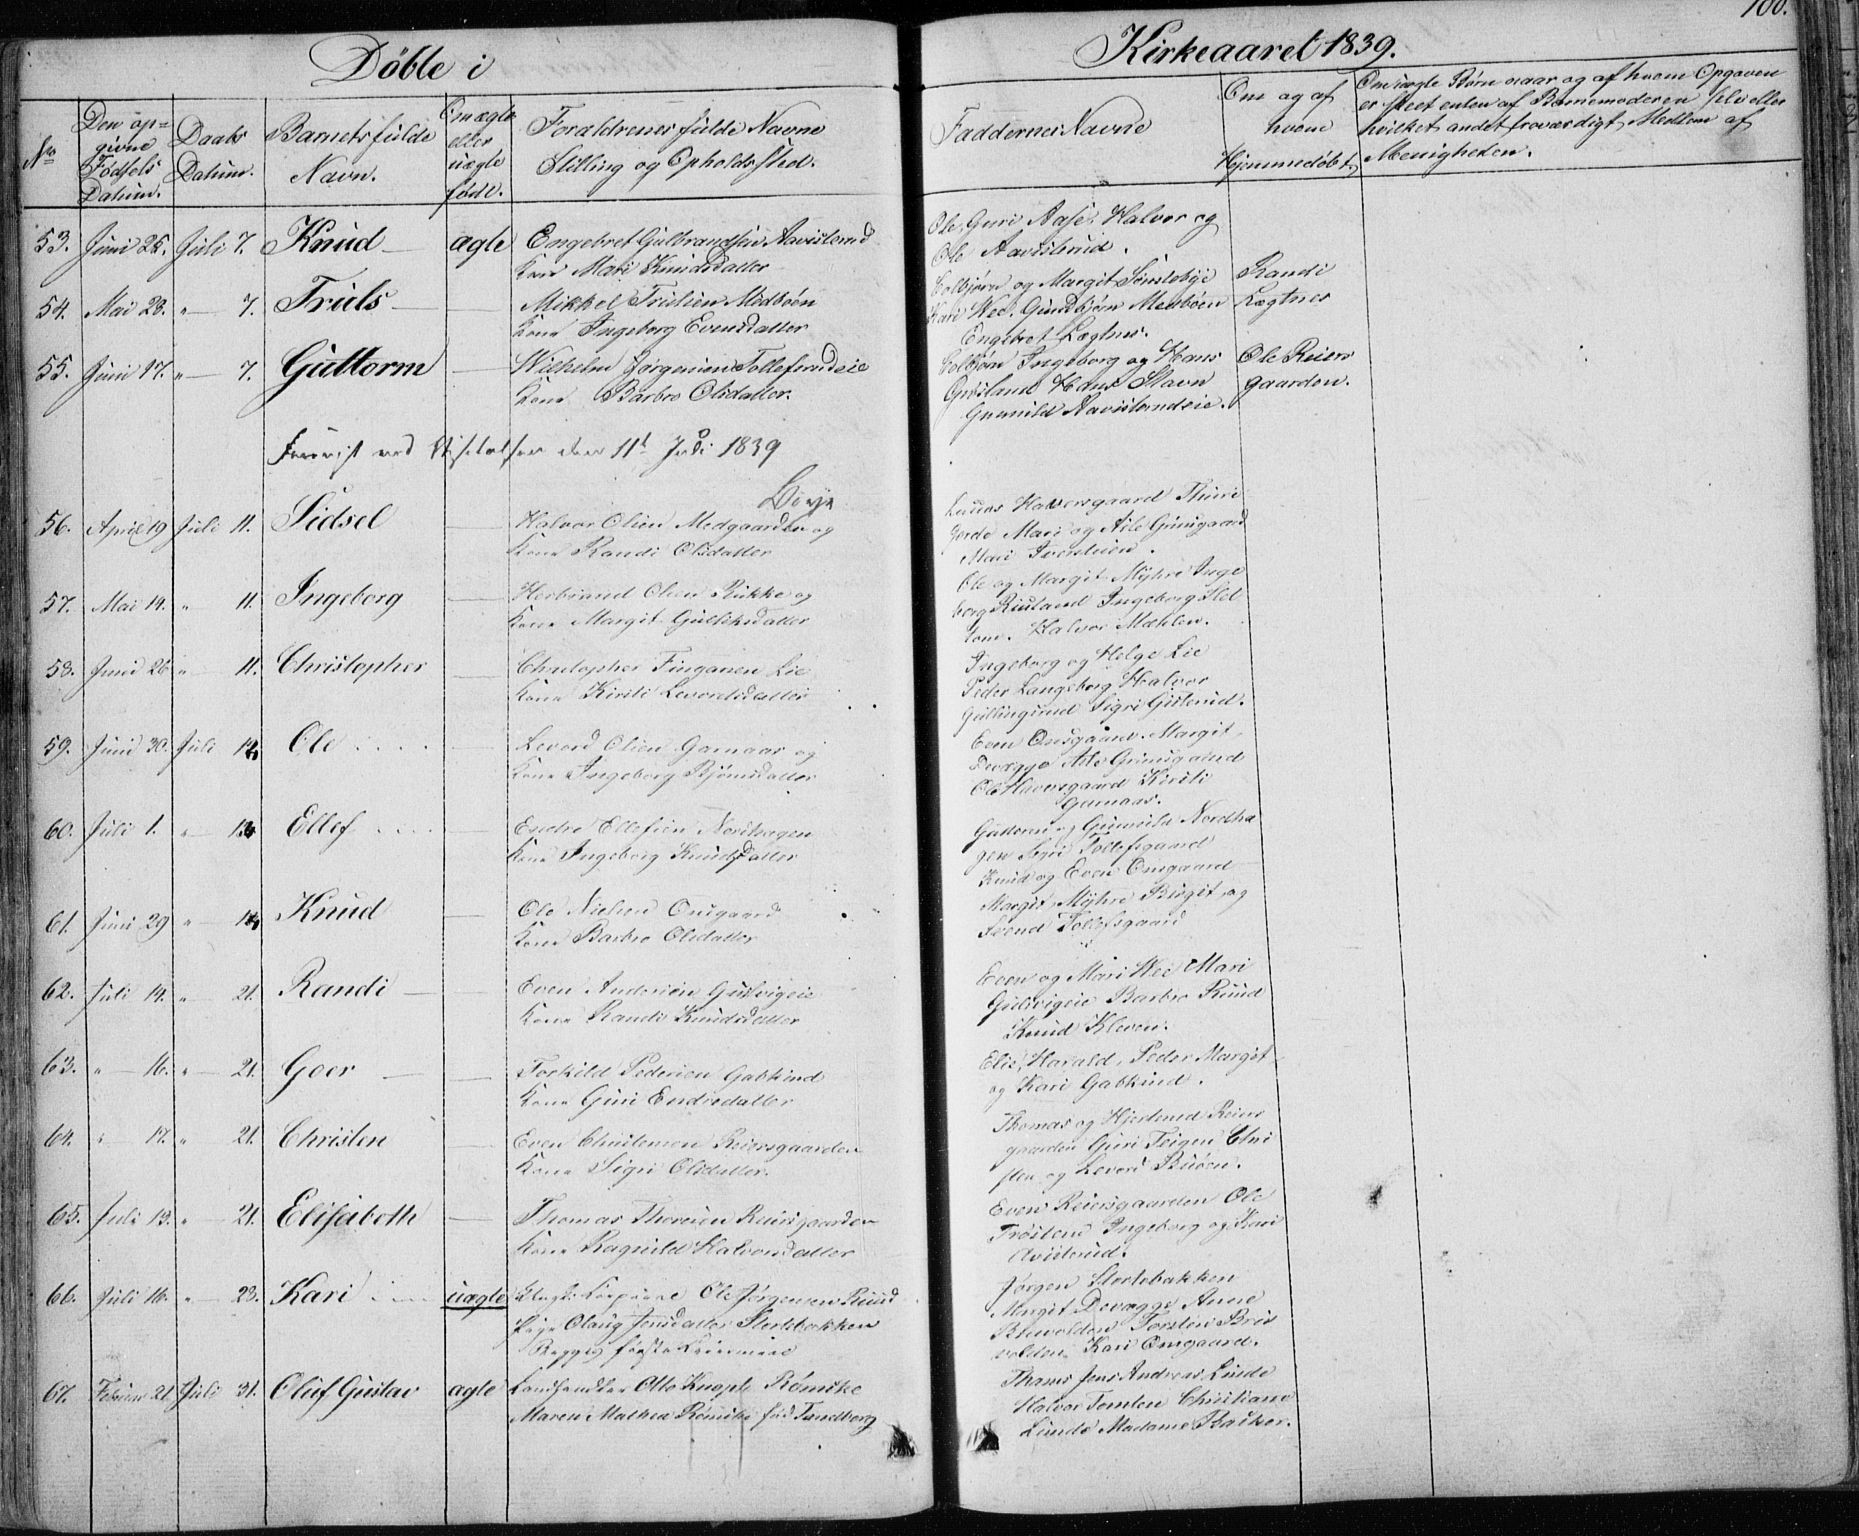 Døbte i
Kirkeaaret 1839.
100.
No
Den op=
givne
Fødsels
Datum.
Daabs
Datum.
Barnets fulde
Navn.
Om ægte
eller
uægte
født.
Forældrenes fulde Navne
Stilling og Opholdssted.
Faddernes Navne
Om og af
hvem
Hjemmedøbt.
Om uægte Børn naar og af hvem Opgaven
er skeet enten af Barnemoderen selv eller
hvilket andet troværdigt Medlem af
Menigheden.
53. Juni 25. Juli 7. Knud ægte Engebret Gulbrandsen Aavistrud
Kone Mari Knudsdatter
Ole, Guri Aase, Halvor og
Ole Aavistrud.
54. Mai 28. " 7. Truls Mikkel Trulsen Medbøen
Kone Ingeborg Evensdatter
Colbjørn og Margit Sønstebye
Kari Wee. Gundbjørn Medbøen
Engebret Lægtnes.
Randi
Lægtnes
55. Juni 17. " 7. Guttorm Wilhelm Jørgensen Tollefsrudeie
Kone Barbro Olsdatter.
Colbjørn Ingeborg og Hans
Hans Stavn
Gunild
Ole Reiers
gaarden.
ved Visitatsen den 11t Juli 1839
56. April 19 Juli 11. Sidsel Halvor Olsen Medgaarden og
Kone Randi Olsdatter
Halvorsgaard Thuri
Mari og Asle Grimsgaard
Mari
57. Mai 14. " 11. Ingeborg Herbrand Olsen Rukke og
Kone Margit Gulliksdatter
Ole og Margit Myhre Inge
borg Rustand Ingeborg Slet
tom. Halvor Mæhlen.
58. Juni 26 " 11. Christopher Christopher Finganen Lie
Kone Kirsti Levordsdatter
Ingeborg og Helge Lie
Peder Langeborg Halvor
Gullingsrud Sigri Gisterud.
59. Juni 30. Juli 14 Ole Levord Olsen Gamaas og
Kone Ingeborg Bjørnsdatter
Even Onsgaard. Margit
Asle Grimsgaard
Ole Haversgaard Kirsti
Gamaas.
60. Juli 1. " 14 Ellef Endre Ellefsen Nordhagen
Kone Ingeborg Knudsdatter
Guttorm og Gunvild Nordha
gen Sigri Tollefsgaard
Knud og Even Onsgaard
61. Juni 29 " 14 Knud Ole Nielsen Onsgaard
Kone Barbro Olsdatter
Margit Myhre Birgit og
Svend Tollefsgaard
62. Juli 14. " 21. Randi Even Andersen Gulsvigeie
Kone Randi Knudsdatter
Even og Mari Wee Mari
Gulsvigeie Barbro Ruud
Knud Kleven.
63. " 16. " 21. Goer Torkild Pedersen Gabkind
Kone Guri Endresdatter
Elie, Harald, Peder Margit
og Kari Gabkind.
64. " 17. " 21. Christen Even Christensen Reiersgaarden
Kone Sigri Olsdatter.
Thomas og Hjertrud Reiers
gaarden Guri Teigen Chri
sten og Levord Buøen.
65. Juli 13. " 21. Elisabeth Thomas Thoresen Reiersgaarden
Kone Ragnild Halvorsdatter
Even Reiersgaarden Ole
Trøstem Ingeborg og Kari
Avistrud.
66. Juli 16. " 23. Kari uægte Ole Jørgensen Ruud
Pige Olaug Jensdatter Sterkebakken
Begges første Leiermaal
Jørgen Sterkebakken
Margit Devegge Anne
Torsten Brus
volden Kari Onsgaard.
67. Februar 21 Juli 31. Oluf Gustav ægte Landhandler Otto Knoph Rømcke
Maren Mathea Rømcke født Tandberg
Thams Jens Andreas Linde
Halvor Tomlen Christiane
Linde Madame Barker.